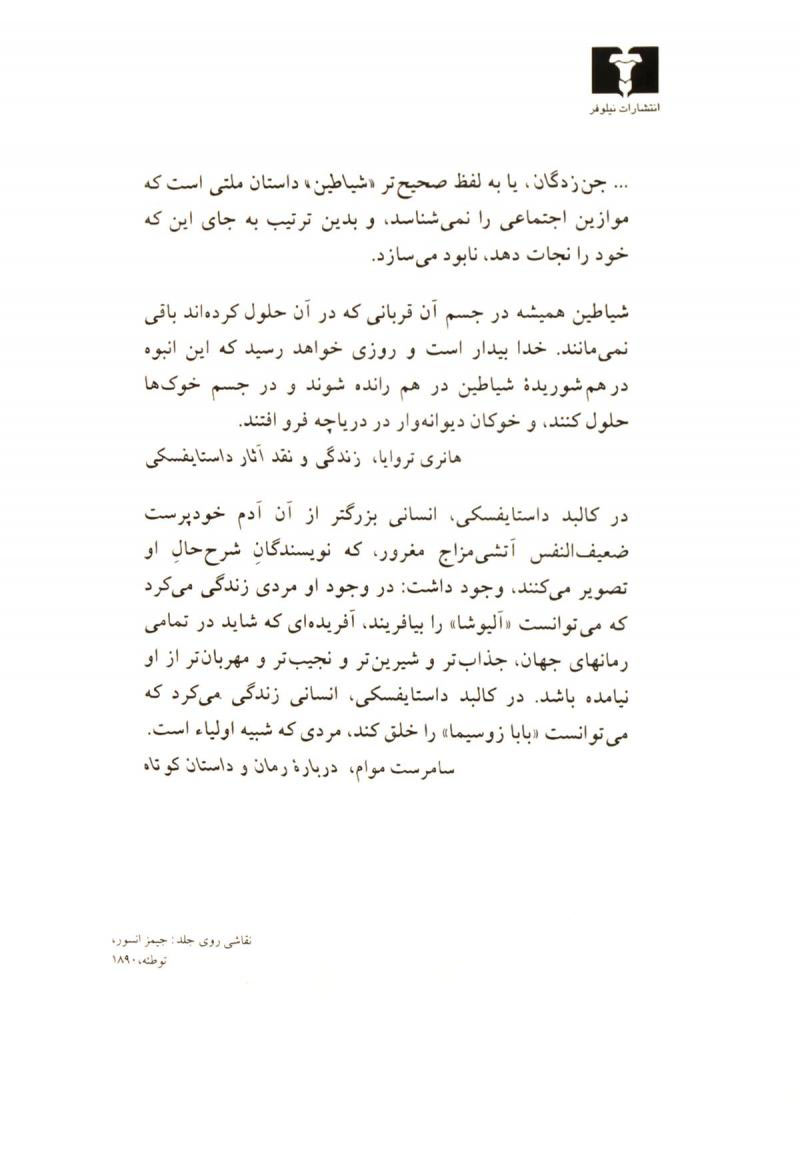 انتشارات نیلوفر
... جن‌زدگان، یا به لفظ صحیح‌تر «شیاطین» داستان ملتی است که
موازین اجتماعی را نمی‌شناسد، و بدین ترتیب به جای این که
خود را نجات دهد، نابود می‌سازد.
شیاطین همیشه در جسم آن قربانی که در آن حلول کرده‌اند باقی
نمی‌مانند. خدا بیدار است و روزی خواهد رسید که این انبوه
درهم‌شوریدهٔ شیاطین در هم رانده شوند و در جسم خوک‌ها
حلول کنند، و خوکان دیوانه‌وار در دریاچه فرو افتند.
هانری تروایا، زندگی و نقد آثار داستایفسکی
در کالبد داستایفسکی، انسانی بزرگتر از آن آدم خودپرست
ضعیف‌النفس آتشی‌مزاج مغرور، که نویسندگانِ شرح‌حالِ او
تصویر می‌کنند، وجود داشت: در وجود او مردی زندگی می‌کرد
که می‌توانست «آلیوشا» را بیافریند، آفریده‌ای که شاید در تمامی
رمانهای جهان، جذاب‌تر و شیرین‌تر و نجیب‌تر و مهربان‌تر از او
نیامده باشد. در کالبد داستایفسکی، انسانی زندگی می‌کرد که
می‌توانست «بابا زوسیما» را خلق کند، مردی که شبیه اولیاء است.
سامرست موام، دربارهٔ رمان و داستان کوتاه
نقاشی روی جلد: جیمز انسور،
توطئه، ۱۸۹۰